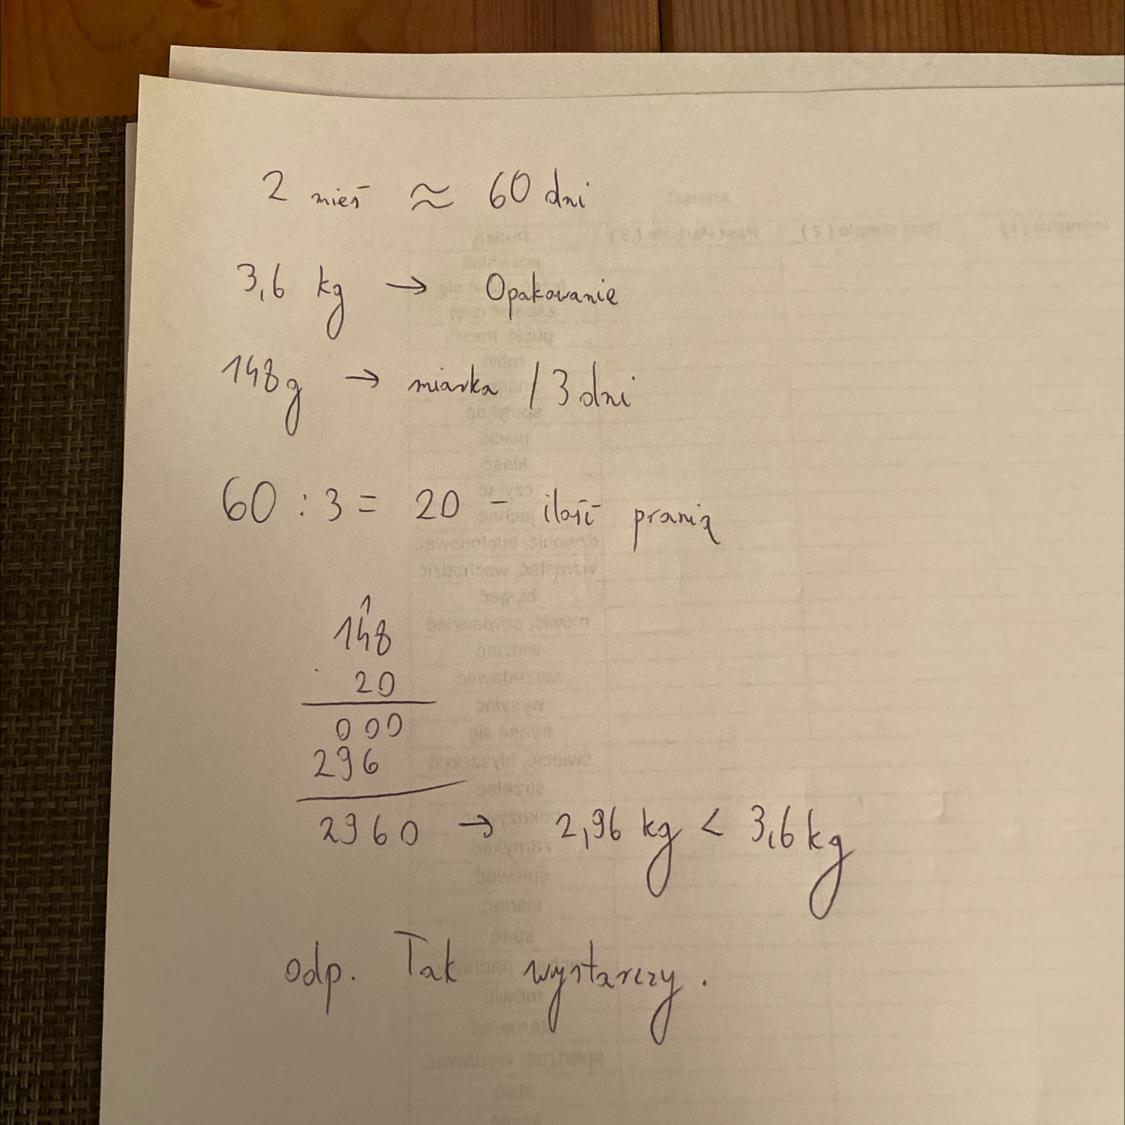 2 mieś ≈ 60 dni
3,6 kg → Opakowanie
148g → miarka / 3 dni
60 : 3 = 20 - ilość prania
1
148
· 20
000
296
2960 → 2,96 kg < 3,6 kg
odp. Tak wystarczy.